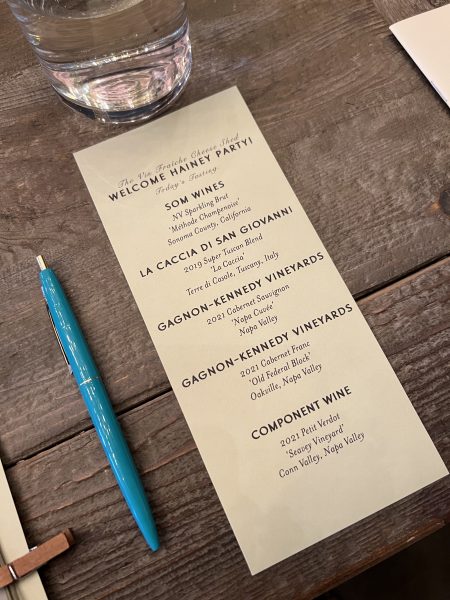 The Vin Fraîche Cheese Shed
WELCOME HAINEY PARTY!
Today's Tasting
SOM WINES
NV Sparkling Brut
'Méthode Champenoise'
Sonoma County, California
LA CACCIA DI SAN GIOVANNI
2019 Super Tuscan Blend
'La Caccia'
Terre di Casole, Tuscany, Italy
GAGNON-KENNEDY VINEYARDS
2021 Cabernet Sauvignon
'Napa Cuvée'
Napa Valley
GAGNON-KENNEDY VINEYARDS
2021 Cabernet Franc
'Old Federal Block'
Oakville, Napa Valley
COMPONENT WINE
2021 Petit Verdot
'Seavey Vineyard'
Conn Valley, Napa Valley